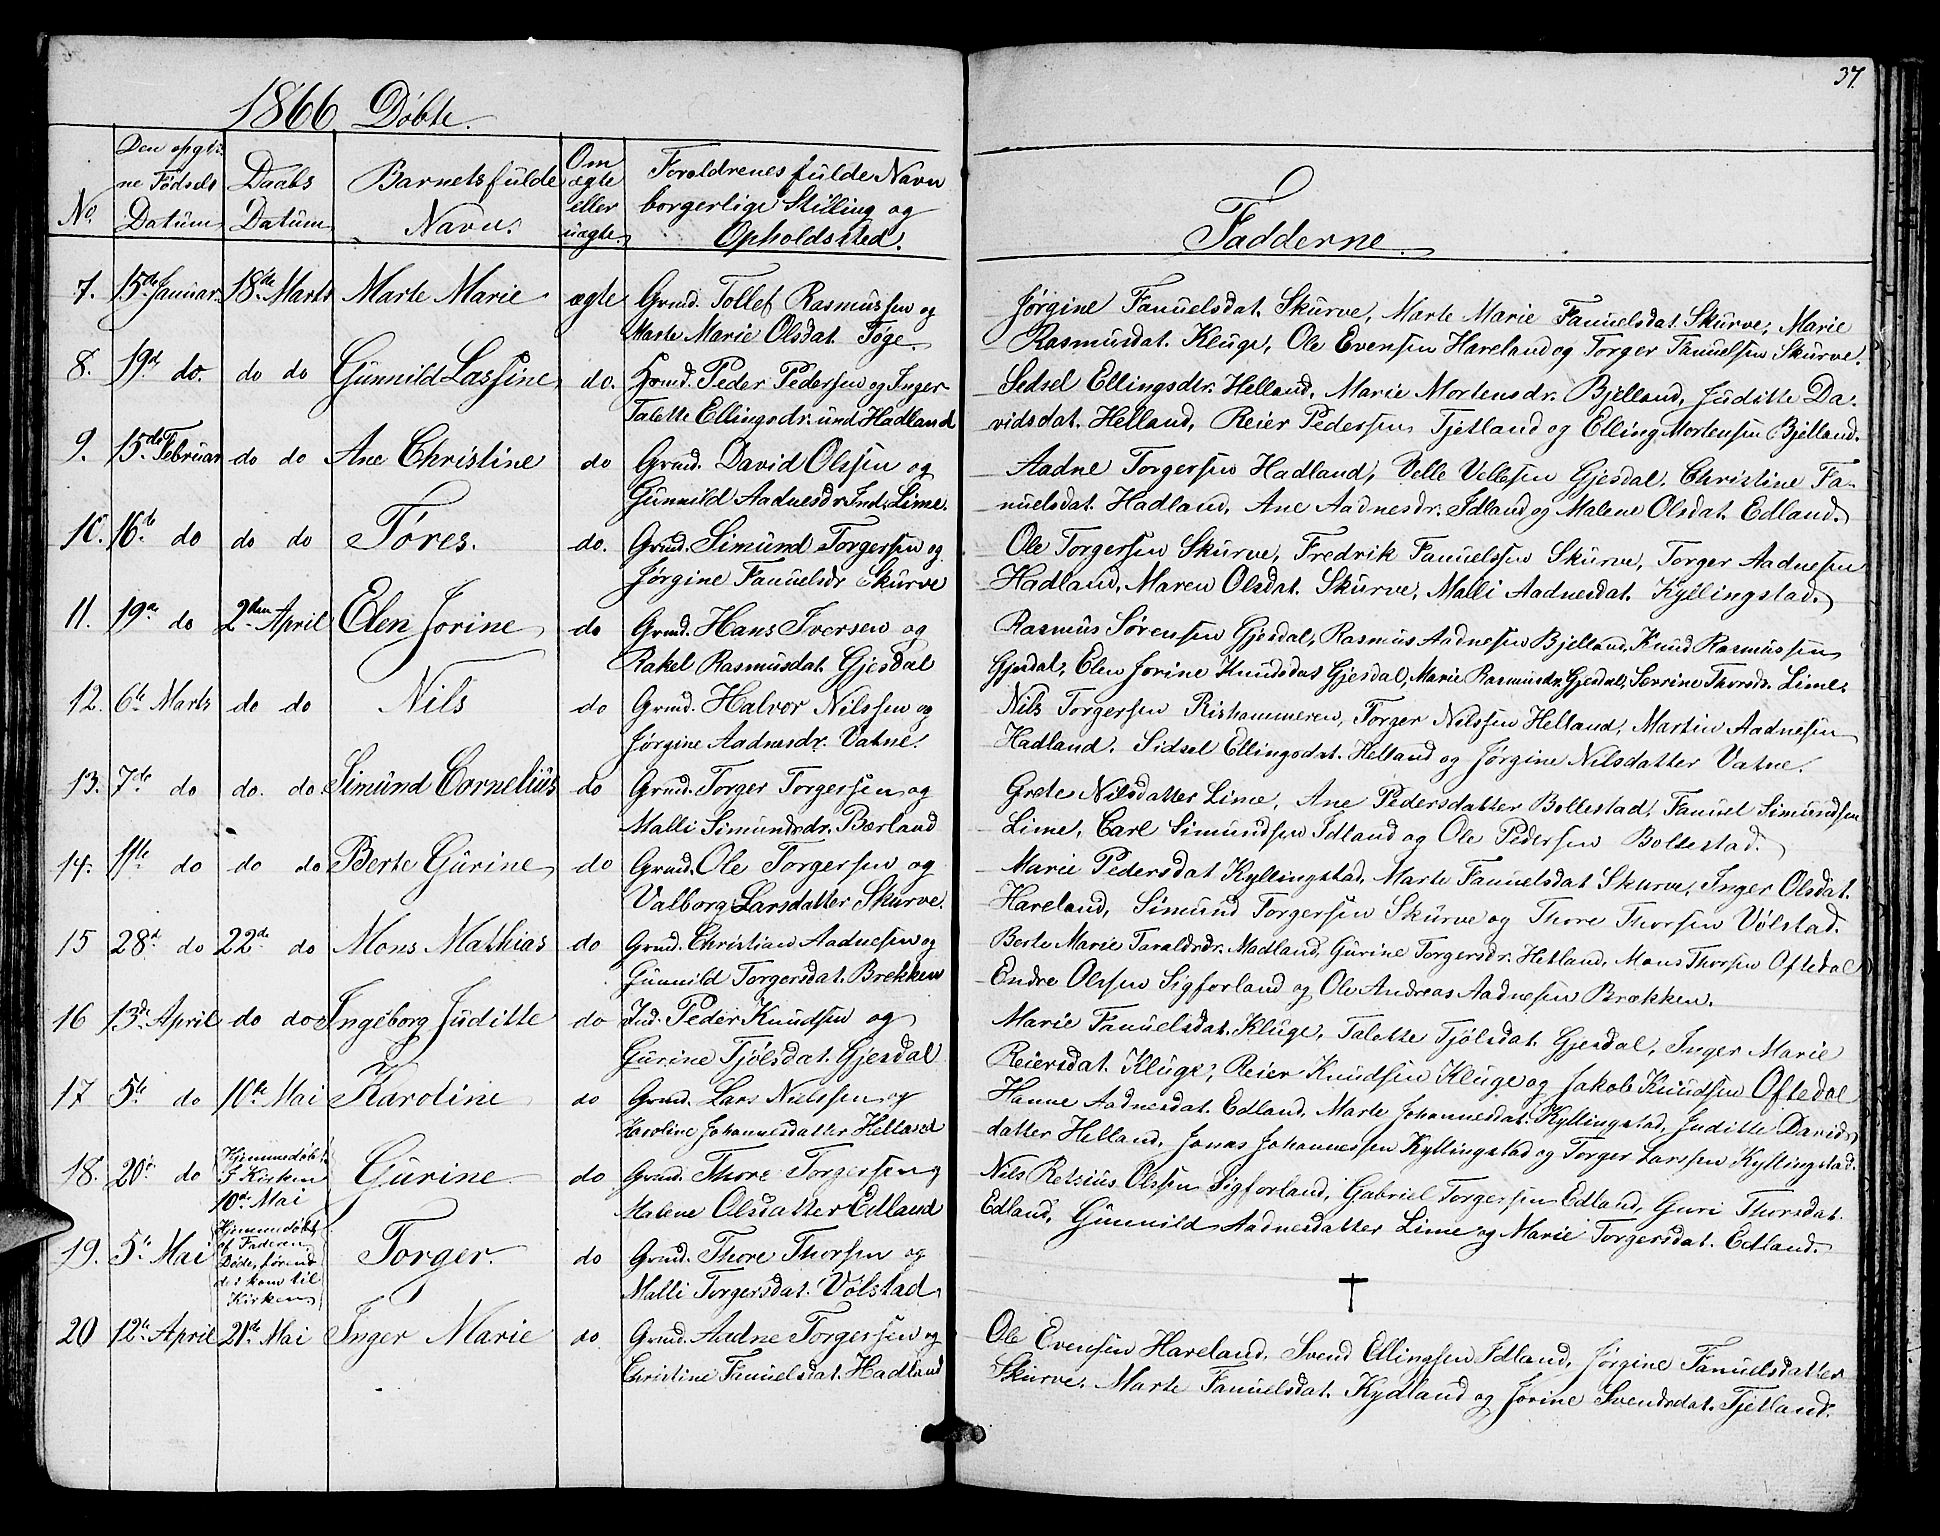 37.
1866 Döbte.
No.
Den opgiv:
ne Födsels
Datum
Daabs
Datum
Barnets fulde
Navn.
Om
ægte
eller
uægte
Foraldrenes fulde Navn
borgerlige Stilling og
Opholdssted.
Fadderne
7. 15de Januar 18de Marts Marte Marie ægte Grmd. Tollef Rasmussen og
Marte Marie Olsdat. Töge.
Jørgine Fanuelsdat. Skurve, Marte Marie Fanuelsdat. Skurve, Marie
Rasmusdat. Kluge, Ole Evensen Hareland og Torger Fanuelsen Skurve.
8. 19de do. do do Gunnild Lassine do. Hsmd. Peder Pedersen og Inger
Talette Ellingsdr. und Hadland
Sedsel Ellingsdtr. Helland, Marie Mortensdr. Bjelland, Juditte Da-
vidsdat. Helland, Reier Pedersen Tjetland og Elling Mortensen Bjelland.
9. 15de Februar do do Ane Christine do Grmd. David Olssen og
Gunnild Aadnesdr. Ind. Lime.
Aadne Torgersen Hadland, Velle Vellesen Gjesdal, Christine Fa-
nuelsdat. Hadland, Ane Aadnesdr. Idland og Malene Olsdat. Edland.
10. 16de do do do Töres. do. Grmd. Simund Torgersen og
Jørgine Fanuelsdr Skurve
Ole Torgersen Skurve, Fredrik Fanuelssen Skurve, Torger Aadnesen
Hadland, Maren Olsdat. Skurve, Malli Aadnesdat. Kyllingstad.
11. 19de do 2den April Elen Jorine do Grmd. Hans Iversen og
Rakel Rasmusdat. Gjesdal
Rasmus Sörensen Gjesdal, Rasmus Aadnesen Bjelland, Knud Rasmussen
Gjesdal, Elen Jorine Knudsdat Gjesdal, Marie Rasmusdr. Gjesdal, Serrine Thorsdr. Lime.
12. 6te Marts do do Nils do Grmd. Halvor Nilssen og
Jørgine Aadnesdr. Vatne.
Nils Torgersen Rishammeren, Torger Nilssen Helland, Martin Aadnesen
Hadland. Sidsel Ellingsdat. Helland og Jørgine Nilsdatter Vatne.
13. 7de do do. do Simund Cornelius do Grmd. Torger Torgersen og
Malli Simundsdr. Bærland
Grete Nilsdatter Lime, Ane Pedersdatter Bollestad, Fanuel Simundsen
Lime, Carl Simundsen Idland og Ole Pedersen Bollestad.
14. 11te do do do Berte Gurine do Grmd. Ole Torgersen og
Valborg Larsdatter Skurve.
Marie Pedersdat Kyllingstad, Marte Fanuelsdat Skurve, Inger Olsdat.
Hareland, Simund Torgersen Skurve og Thore Thorsen Völstad.
15 28de do 22de do Mons Mathias do Grmd. Christian Aadnesen og
Gunnild Torgersdat. Brekken
Berte Marie Taraldsdr. Madland, Gurine Torgersdr. Hetland, Mons Thorsen Oftedal
Endre Olssen Sigforland og Ole Andreas Aadnesen Brækken.
16 13de April do do Ingeborg Juditte do Ind. Peder Knudsen og
Gurine Tjölsdat. Gjesdal
Marie Fanuelsdat. Kluge, Talette Tjölsdat Gjesdal, Inger Marie
Reiersdat. Kluge, Reier Knudsen Kluge og Jakob Knudsen Oftedal
17 5te do 10de Mai Karoline do Grmd. Lars Nielssen og
Karoline Johannesdatter Helland
Hanne Aadnesdat. Edland, Marte Johannesdat. Kyllingstad, Juditte Davids-
datter Helland, Jonas Johannessen Kyllingstad og Torger Larssen Kyllingstad.
18. 20de do Hjemmedöbt
I Kirken
10de Mai
Gurine do Grmd. Thore Torgersen og
Malene Olsdatter Edland
Nils Retzius Olssen Sigforland, Gabriel Torgersen Edland, Guri Thorsdat.
Edland, Gunnild Aadnesdatter Lime og Marie Torgersdat. Edland.
19. 5te Mai Hjemmedöbt
af Faderen
Döde, förend
det kom til
Kirken
Torger. do Grmd. Thore Thorsen og
Malli Torgersdat. Völstad
†
20 12te April 21de Mai Inger Marie do Grmd. Aadne Torgersen og
Christine Fanuelsdat. Hadland
Ole Evensen Hareland, Svend Ellingsen Idland, Jørgine Fanuelsdatter
Skurve. Marte Fanuelsdat. Kydland og Jorine Svendsdat. Tjetland.